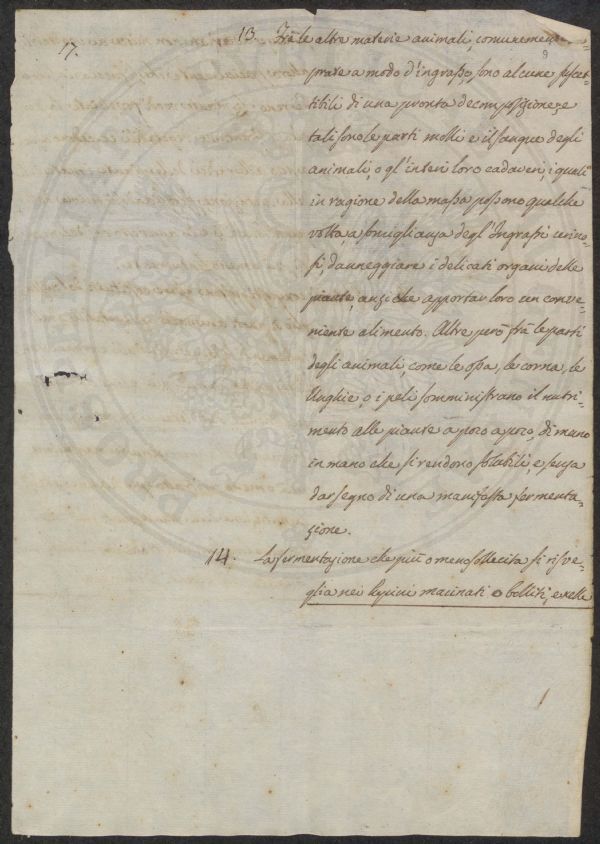 17.
13. Frà le altre materie animali, comunemen
prate a modo d'ingrasso, sono alcune suscet=
tibili di una pronta decomposizione, e
tali sono le parti molli e il sangue degli
animali, o gl'interi loro cadaveri, i quali
in ragione della massa possono qualche
volta, a somiglianza degl'Ingrassi
si danneggiare i delicati organi delle
piante, anzi che apportar loro un conve=
niente alimento. Altre però frà le parti
degli animali, come le ossa, le corna, le
Unghie, o i peli somministrano il nutri=
mento alle piante a poco a poco, di mano
in mano che si rendono solubili, e senza
dar segno di una manifesta fermenta=
zione.
14. La fermentazione che più o meno sollecita si risve=
glia nei Lupini macinati o bolliti, e nelle